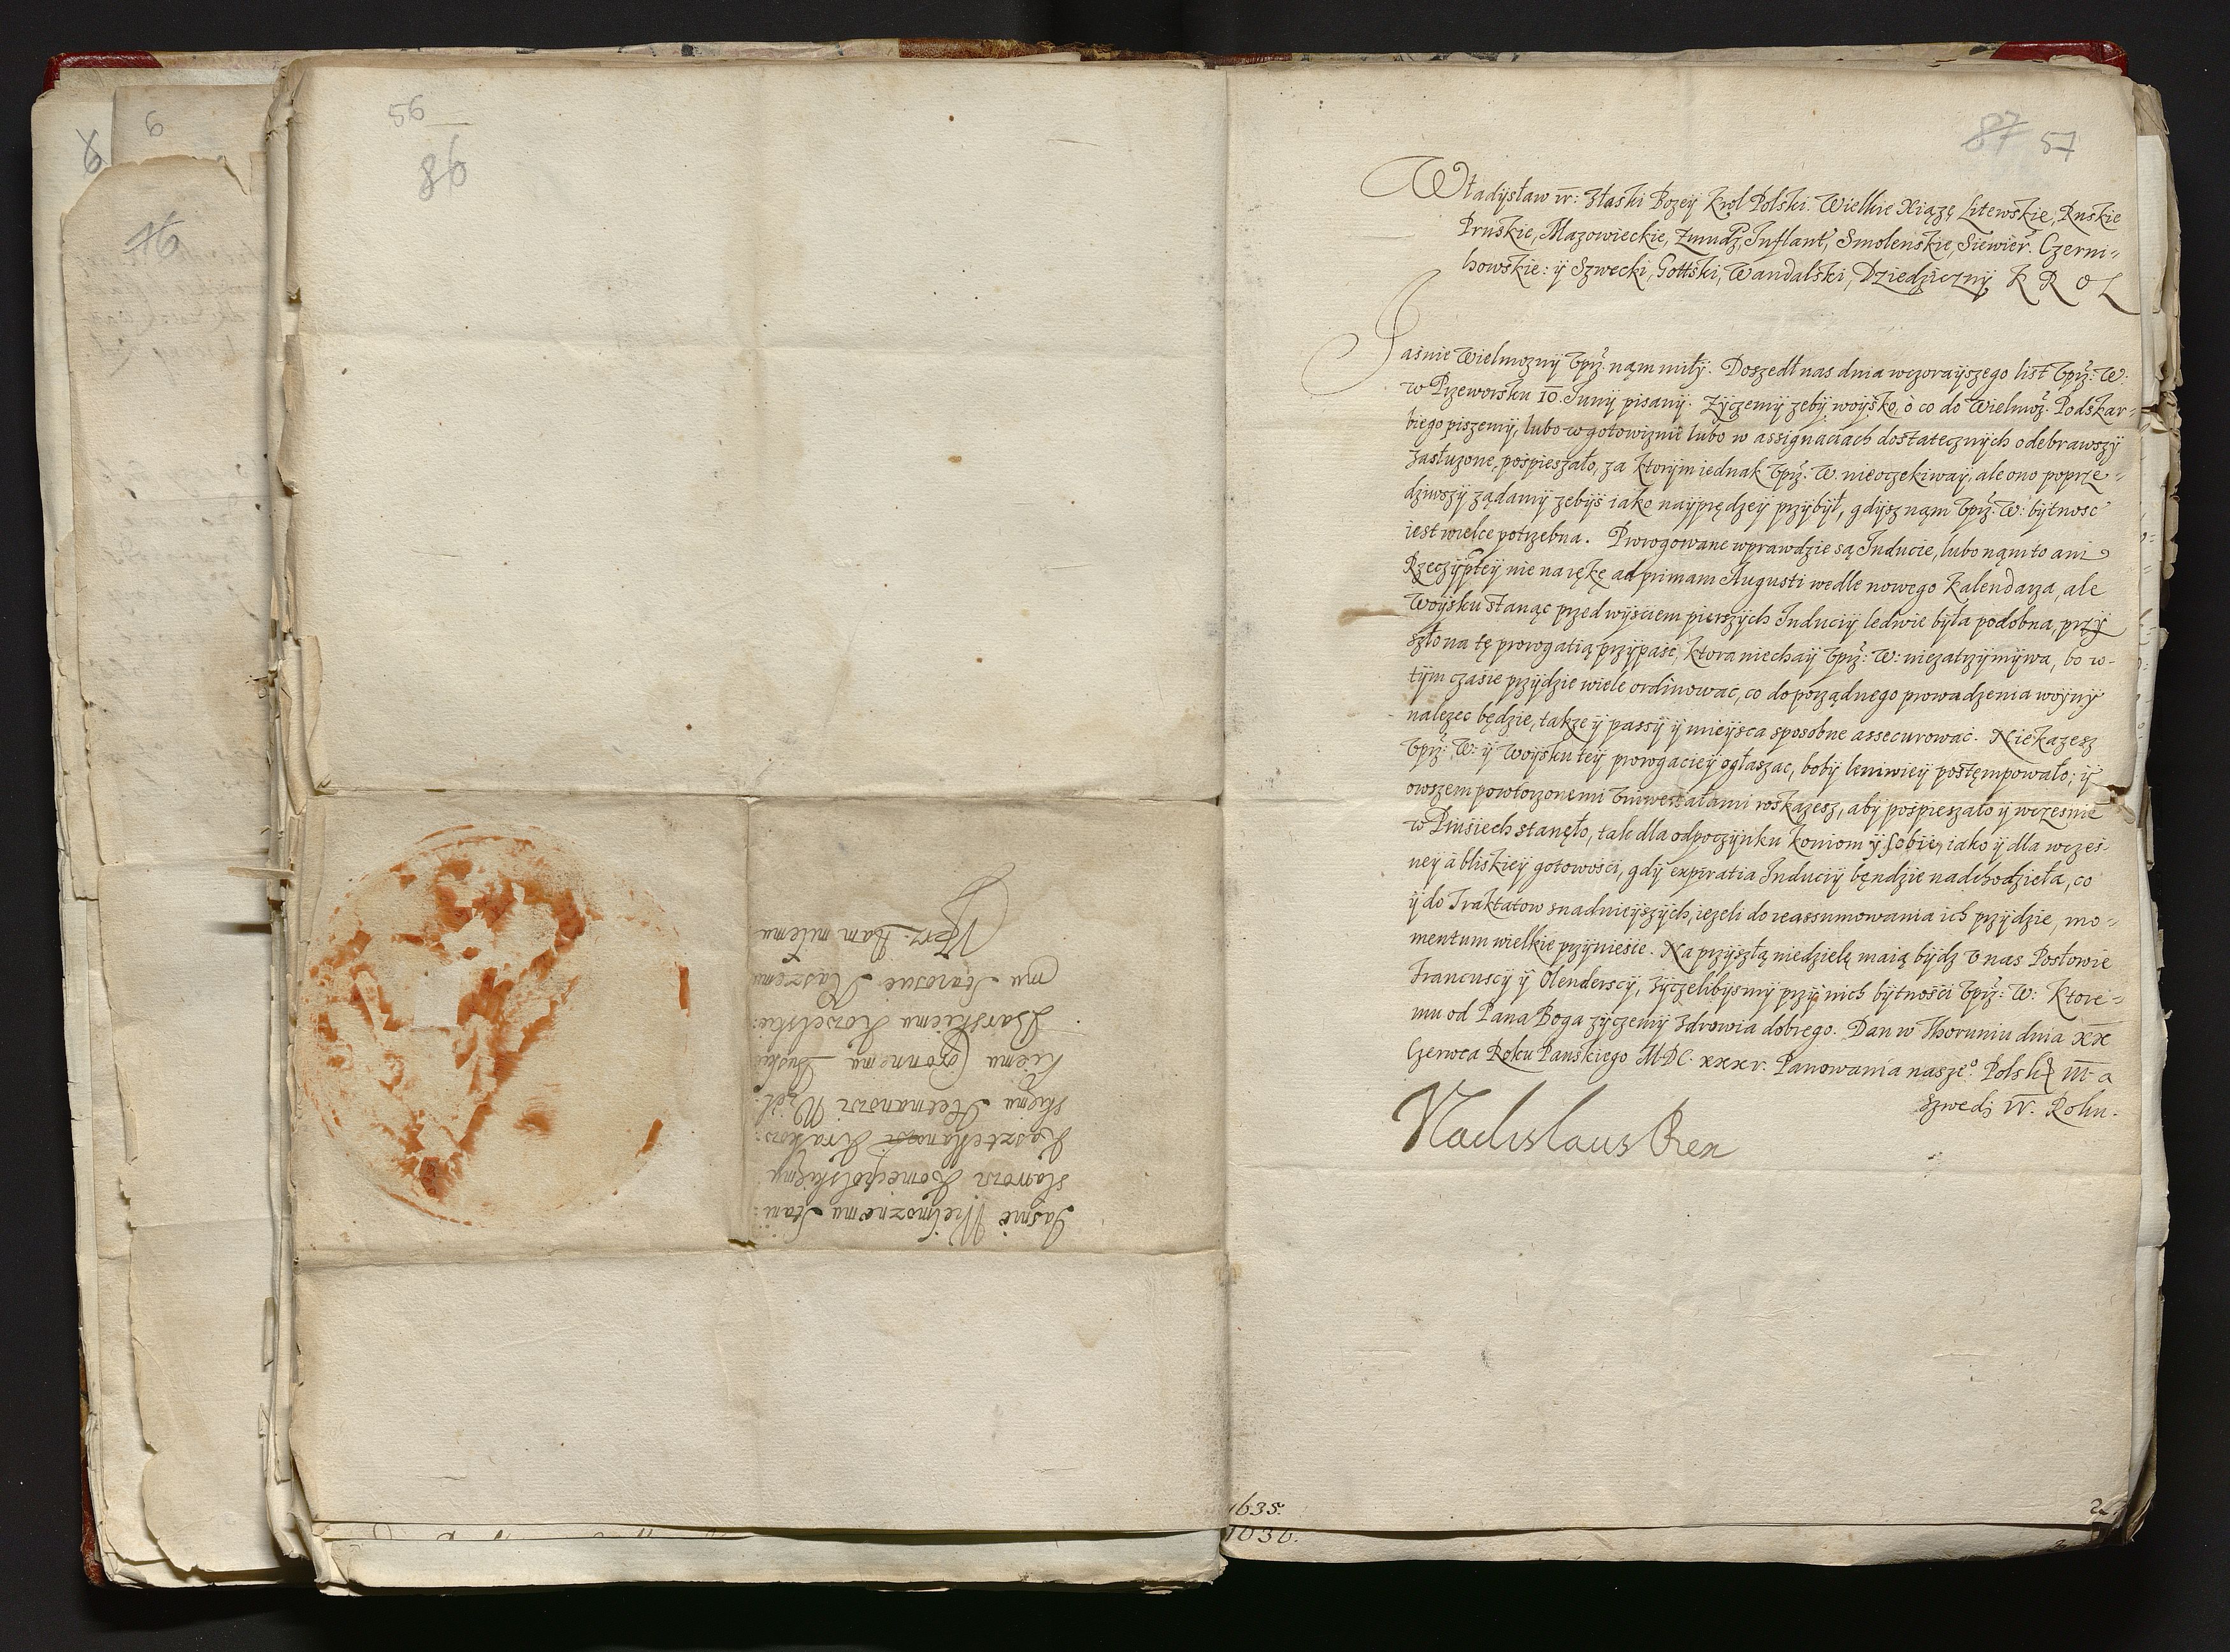 56
86
Jaśnie Wielmożnemu Stani:
sławowi Koniecpolskiemu
Kasztellanowi Krakow:
skiemu Hetmanowi Wiel:
kiemu Coronnemu Buskie
Barskiemu Kowelskie:
mu Staroscie Naszemu
Vprz. Nam miłemu
6
16
87 57
Władysław IV: Złaski Bozey Krol Polski. Wielkie Xiążę Litewskie, Ruskie
Pruskie, Mazowieckie, Zmudz, Inflant, Smolenskie, Siewier. Czerni=
howskie: ÿ Szwecki, Gottski, Wandalski, Dziedziczny K R O L
Jaśnie Wielmozny Vprz. nąm miły. Doszedł nas dnia wczorayszego list Vprz: W:
w Przeworsku 10. Juny pisany. Zyczemy zeby woysko, o co do Wielmoz. Podskar=
biego piszemy, lubo w gotowiznie lubo w assignaciach dostatecznych odebrawszy
zasłuzone, pospieszało, za ktorym iednak Vprz. W. nie oczekiway, ale ono poprze=
dziwszy ządamy zebys iako nayprędzey przybył, gdysz nąm Vprz. W: bytnosc
iest wielce potrzebna. Prorogowane wprawdzie są Inducie, lubo nąm to ani
Rzeczyptey nie na rękę ad primam Augusti wedle nowego Kalendarza, ale
Woysku stanąc przed wysciem pierszych Induciy ledwie była podobna, przy
szło na tę prorogatią przypasc, ktora niechay Vprz: W: nie zatrzymywa, bo w-
tym czasie przydzie wiele ordinowac, co do porządnego prowadzenia woyny
nalezec będzie, takze y passy y mieysca sposobne assecurowac. Nie kazesz
Vprz: W: y Woysku tey prorogaciey ogłaszac, boby leniwiey postęmpowało; y
owszem powtorzonemi Vniwersałami roskazesz, aby pospieszało y wczesnie
w Prusiech stanęło, tak dla odpoczynku koniom y sobie, iako y dla wczes-
ney a bliskiey gotowosci, gdy expiratia Induciy bęndzie nadchodzieła, co
y do Traktatow snadnieyszych, iezeli do reassumowania ich przydzie, mo=
mentum wielkie przyniesie. Na przyszłą niedzielę maią bydz v nas Posłowie
Francuscy y Olenderscy, zyczelibysmy przy nich bytnosci Vprz: W: Ktore=
mu od Pana Boga zyczemy zdrowia dobrego. Dan w Thoruniu dnia XX
Czerwca Roku Panskiego M.DC. XXXV. Panowania nasze°. Polsk: III. a
Szwedz IV. Roku.
Vladislaus Rex
1635.
1636.
2